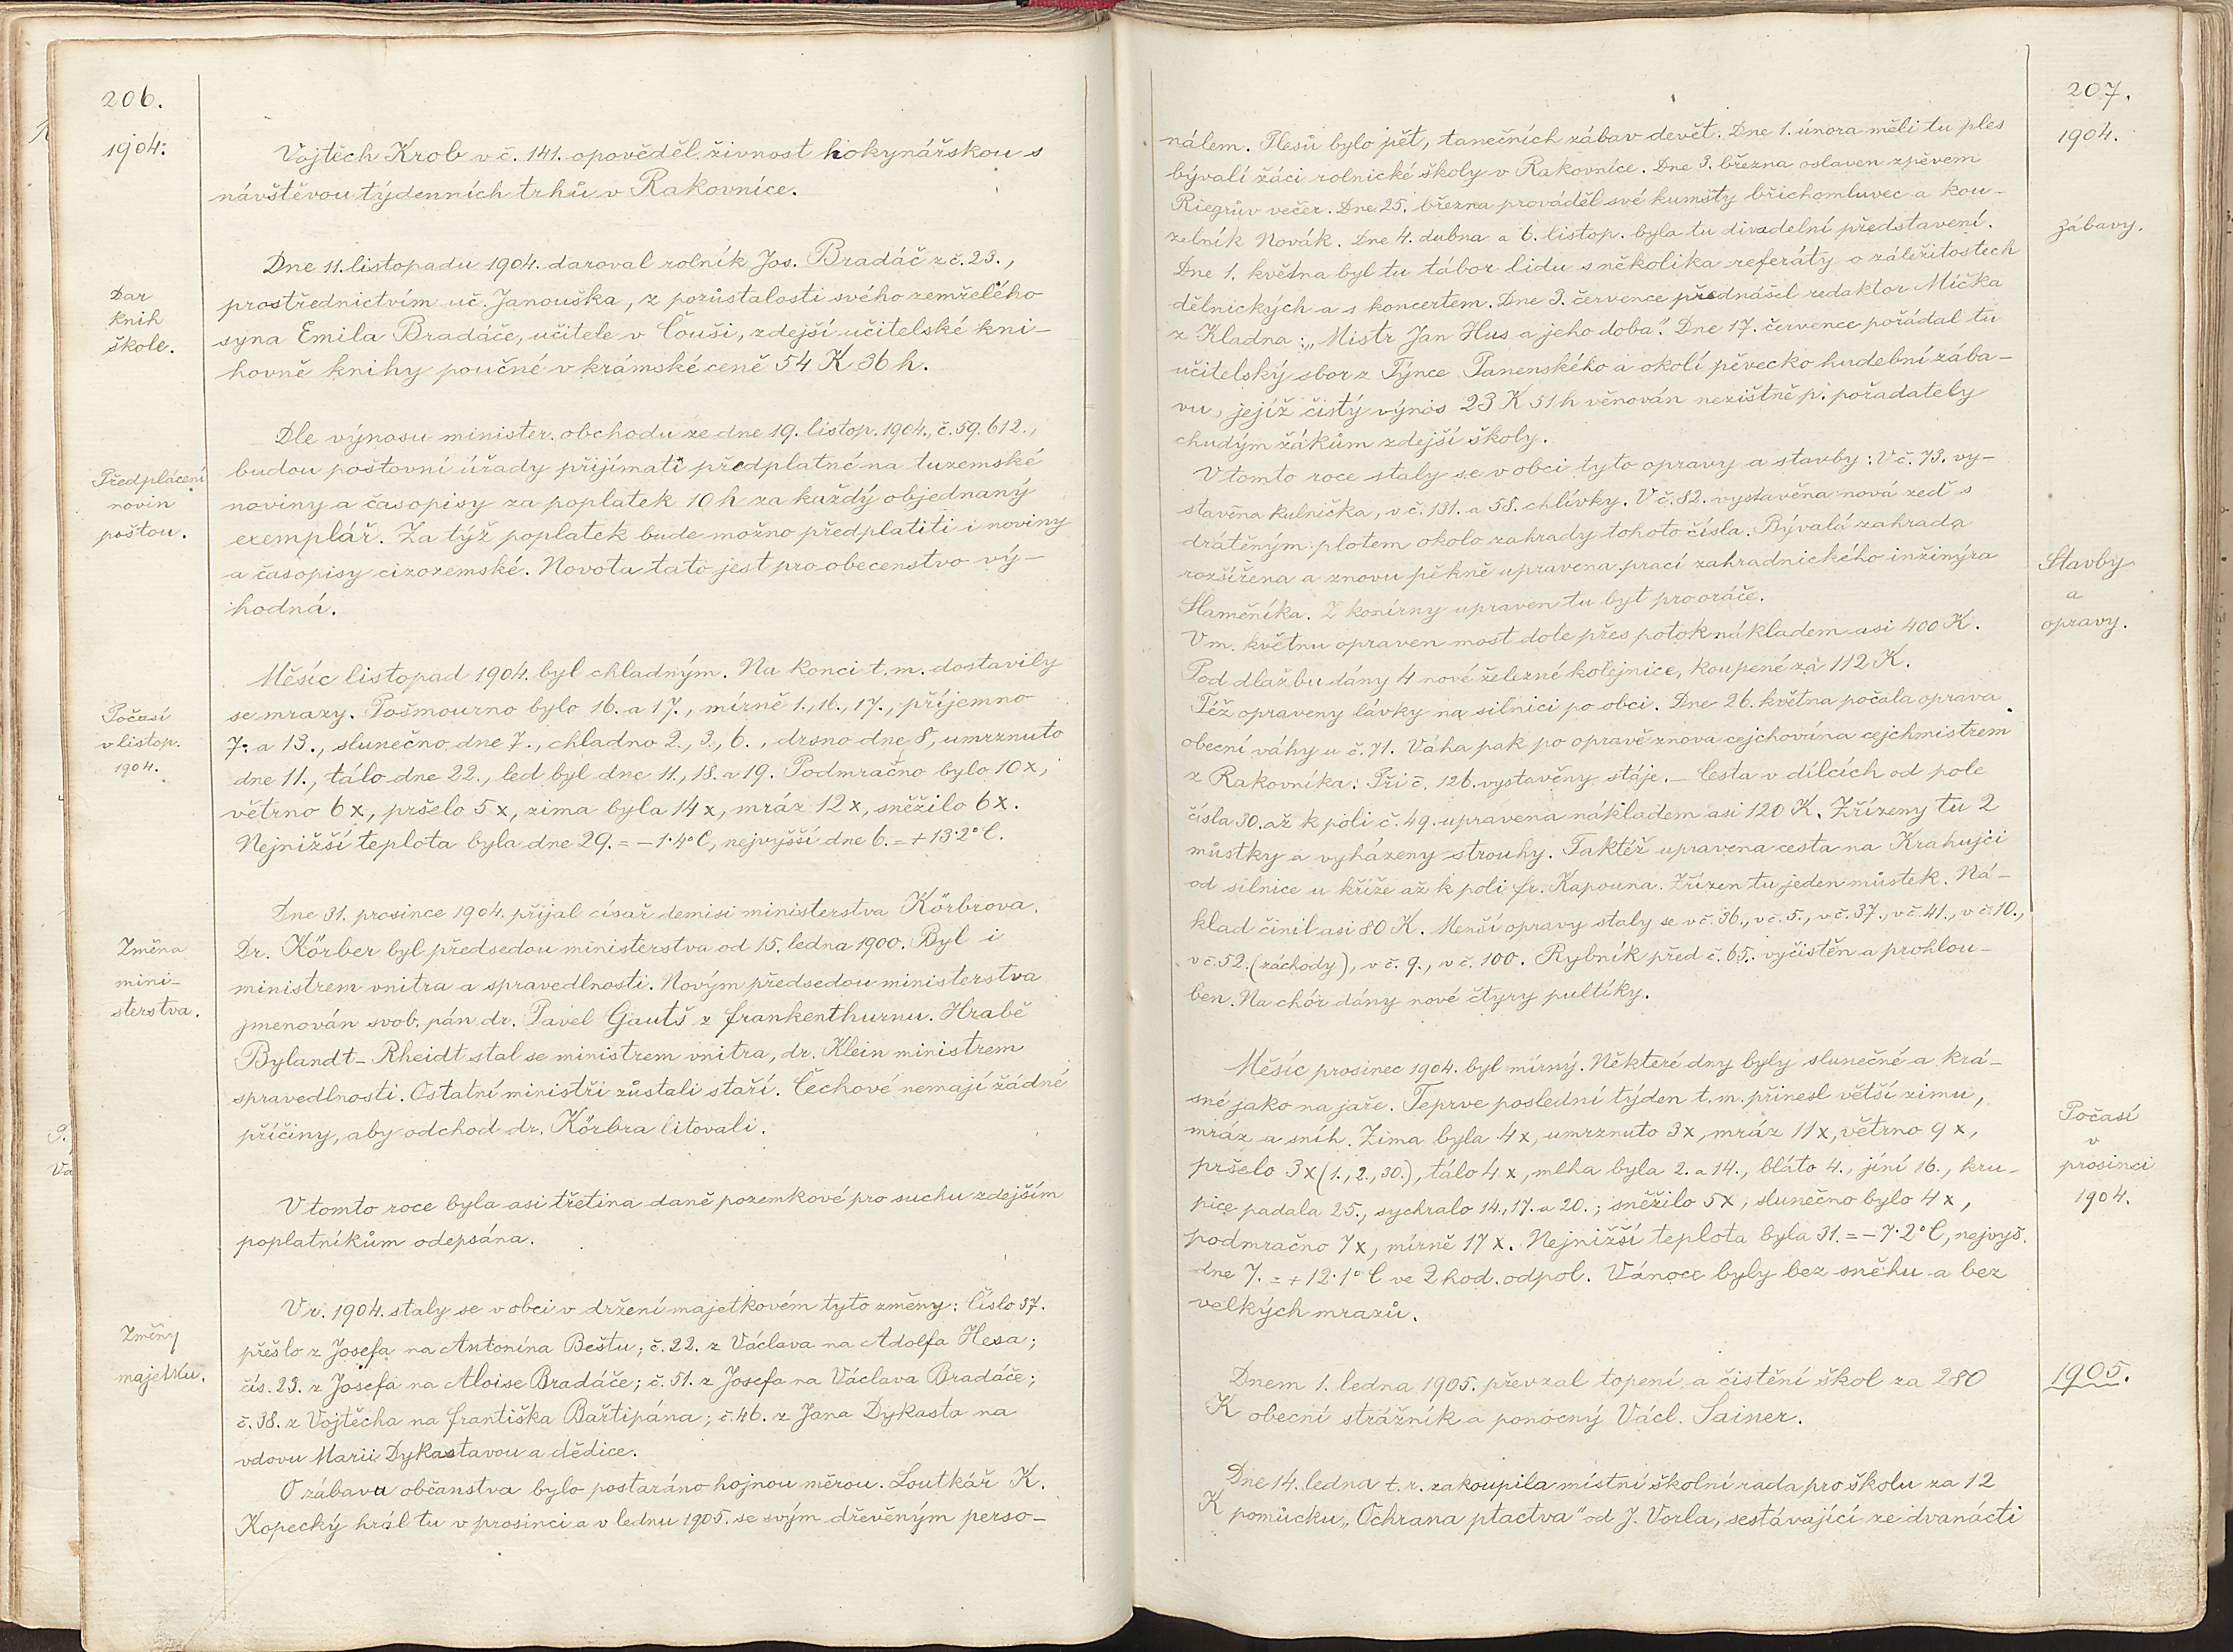 206.
1904.
Vojtěch Krob v č. 141. opověděl živnost hokynářskou s
návštěvou týdenních trhů v Rakovníce.
Dar
knih
škole.
Dne 11. listopadu 1904. daroval rolník Jos. Bradáč z č. 23.,
prostřednictvím uč. Janouška, z pozůstalosti svého zemřelého
syna Emila Bradáče, učitele v Čouši, zdejší učitelské kni-
hovně knihy poučné v krámské ceně 54 K 36 h.
Předplácení
novin
poštou.
Dle výnosu minister. obchodu ze dne 19. listop. 1904., č. 59.612.,
budou poštovní úřady přijímati předplatné na tuzemské
noviny a časopisy za poplatek 10 h za každý objednaný
exemplář. Za týž poplatek bude možno předplatiti i noviny
a časopisy cizozemské. Novota tato jest pro obecenstvo vý-
hodná.
Počasí
v listop.
1904.
Měsíc listopad 1904. byl chladným. Na konci t. m. dostavily
se mrazy. Pošmourno bylo 16. a 17., mírně 1., 16., 17., příjemno
7. a 13., slunečno dne 7., chladno 2., 3., 6., drsno dne 8, umrznuto
dne 11., tálo dne 22., led byl dne 11., 18. a 19. Podmračno bylo 10x,
větrno 6x, pršelo 5x, zima byla 14x, mráz 12x, sněžilo 6x.
Nejnižší teplota byla dne 29. = -1·4°C, nejvyšší dne 6. = +13·2°C.
Změna
mini-
sterstva.
Dne 31. prosince 1904. přijal císař demisi ministerstva Körbrova.
Dr. Körber byl předsedou ministerstva od 15. ledna 1900. Byl i
ministrem vnitra a spravedlnosti. Novým předsedou ministerstva
jmenován svob. pán dr. Pavel Gautš z Frankenthurnu. Hrabě
Bylandt-Rheidt stal se ministrem vnitra, dr. Klein ministrem
spravedlnosti. Ostatní ministři zůstali staří. Čechové nemají žádné
příčiny, aby odchod dr. Körbra litovali.
V tomto roce byla asi třetina daně pozemkové pro suchu zdejším
poplatníkům odepsána.
Změny
majetku.
V r. 1904. staly se v obci v držení majetkovém tyto změny: Číslo 37.
přešlo z Josefa na Antonína Beštu; č. 22. z Václava na Adolfa Hesa;
čís. 23. z Josefa na Aloise Bradáče; č. 51. z Josefa na Václava Bradáče;
č. 38. z Vojtěcha na Františka Bařtipána; č. 46. z Jana Dykasta na
vdovu Marii Dykastavou a dědice.
O zábavu občanstva bylo postaráno hojnou měrou. Loutkář K.
Kopecký hrál tu v prosinci a v lednu 1905. se svým dřevěným perso-
207.
1904.
nálem. Plesů bylo pět, tanečních zábav devět. Dne 1. února měli tu ples
bývalí žáci rolnické školy v Rakovníce. Dne 3. března oslaven zpěvem
Riegrův večer. Dne 25. března prováděl své kumšty břichomluvec a kou-
zábavy.
zelník Novák. Dne 4. dubna a 6. listop. byla tu divadelní představení.
Dne 1. května byl tu tábor lidu s několika referáty o záležitostech
dělnických a s koncertem. Dne 3. července přednášel redaktor Míčka
z Kladna: „Mistr Jan Hus a jeho doba." Dne 17. července pořádal tu
učitelský sbor z Týnce Panenského a okolí pěvecko hudební zába-
vu, jejíž čistý výnos 23 K 51 h věnován nezištně p. pořadately
chudým žákům zdejší školy.
Stavby
a
opravy.
V tomto roce staly se v obci tyto opravy a stavby: V č. 73. vy-
stavěna kulnička, v č. 131. a 58. chlívky. V č. 82. vystavěna nová zeď s
drátěným plotem okolo zahrady tohoto čísla. Bývalá zahrada
rozšířena a znovu pěkně upravena prací zahradnického inžinýra
Slaměníka. Z konírny upraven tu byt pro oráče.
V m. květnu opraven most dole přes potok nákladem asi 400 K.
Pod dlažbu dány 4 nové železné kolejnice, koupené za 112 K.
Též opraveny lávky na silnici po obci. Dne 26. května počala oprava
obecní váhy u č. 71. Váha pak po opravě znova cejchována cejchmistrem
z Rakovníka. Při č. 126. vystavěny stáje. – Cesta v dílcích od pole
čísla 30. až k poli č. 49. upravena nákladem asi 120 K. Zřízeny tu 2
můstky a vyházeny strouhy. Taktéž upravena cesta na Krahujci
od silnice u kříže až k poli Fr. Kapouna. Zřízen tu jeden můstek. Ná-
klad činil asi 80 K. Menší opravy staly se v č. 36., v č. 5., v č. 37., v č. 41., v č. 10.,
v č. 52. (záchody), v č. 9., v č. 100. Rybník před č. 65. vyčistěn a prohlou-
ben. Na chór dány nové čtyry pultíky.
Počasí
v
prosinci
1904.
Měsíc prosinec 1904. byl mírný. Některé dny byly slunečné a krá-
sné jako na jaře. Teprve poslední týden t. m. přinesl větší zimu,
mráz a sníh. Zima byla 4x, umrznuto 3x, mráz 11x, větrno 9x,
pršelo 3x (1., 2., 30.), tálo 4x, mlha byla 2. a 14., bláto 4., jíní 16., kru-
pice padala 25., sychralo 14., 17. a 20.; sněžilo 5x, slunečno bylo 4x,
podmračno 7x, mírně 17x. Nejnižší teplota byla 31. = -7·2°C, nejvyš.
dne 7. = +12·1°C ve 2 hod. odpol. Vánoce byly bez sněhu a bez
velkých mrazů.
1905.
Dnem 1. ledna 1905. převzal topení a čistění škol za 280
K obecní strážník a ponocný Václ. Sainer.
Dne 14. ledna t. r. zakoupila místní školní rada pro školu za 12
K pomůcku „Ochrana ptactva" od J. Vorla, sestávající ze dvanácti